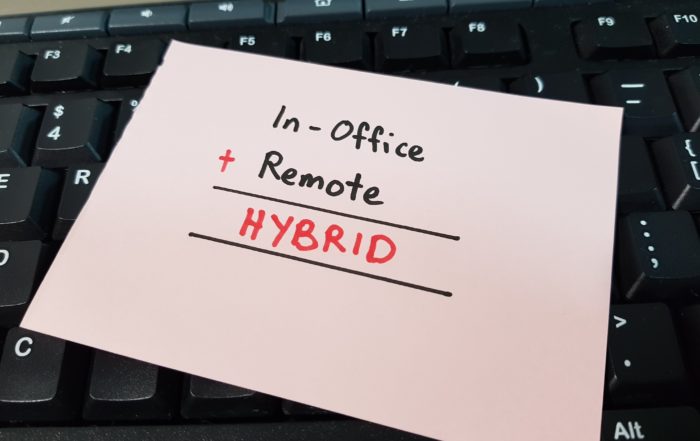 F3
F4
F5
F6
F7
F8
F9
F10
$
4
)
=
{
[
E
R
:
;
C
>
.
Alt
In-Office
+ Remote
HYBRID